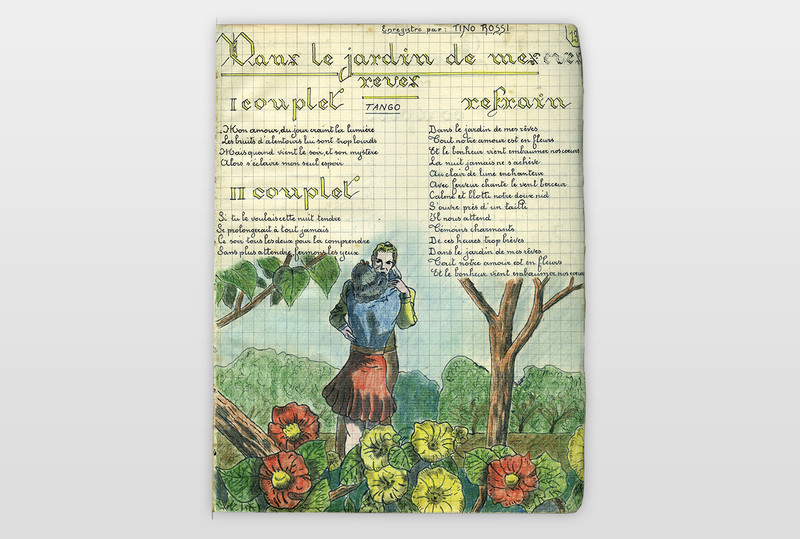 Enregistré par: TINO ROSSI
Dans le jardin de mes
reves
TANGO
I couplet
Mon amour, du jour craint la lumière
Les bruits d'alentours lui sont trop lourds
Mais quand vient le soir, et son mystère
Alors s'éclaire mon seul espoir
II couplet
Si tu le voulais cette nuit tendre
Se prolongerait à tout jamais
Ce soir tous les deux pour la comprendre
Sans plus attendre fermons les yeux
refrain
Dans le jardin de mes rêves
Tout notre amour est en fleurs
Et le bonheur vient embaumer nos cœurs
La nuit jamais ne s'achève
Au clair de lune enchanteur
Avec ferveur chante le vent berceur
Calme et blotti notre doux nid
S'ouvre près d'un taillis
Il nous attend
Témoins charmants
De ces heures trop brèves
Dans le jardin de mes rêves
Tout notre amour est en fleurs
Et le bonheur vient embaumer nos cœurs